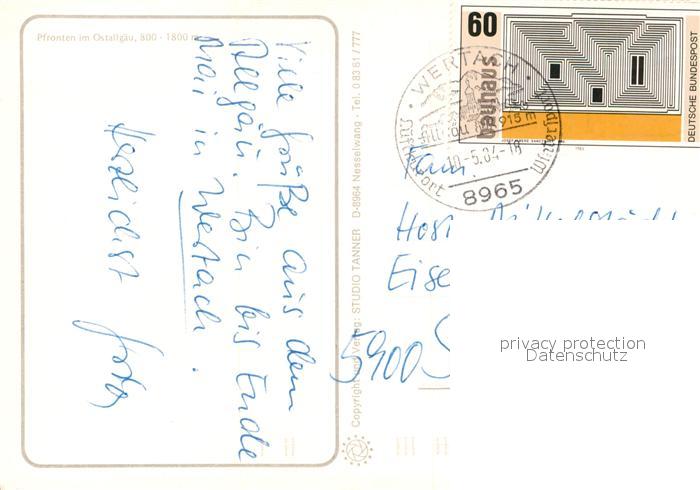 Pfronten im Ostallgäu, 800 - 1800 m
Viele Grüße aus dem
Allgäu. Bin bis Ende
Mai in Wertach.
Herzlichst
Copyright und Verlag: STUDIO TANNER D-8964 Nesselwang · Tel. 0 83 61 / 777
60
bauhaus
DEUTSCHE BUNDESPOST
WERTACH
915 m
-5.84-18
8965
Wintersport
Eise
5900 S
privacy protection
Datenschutz